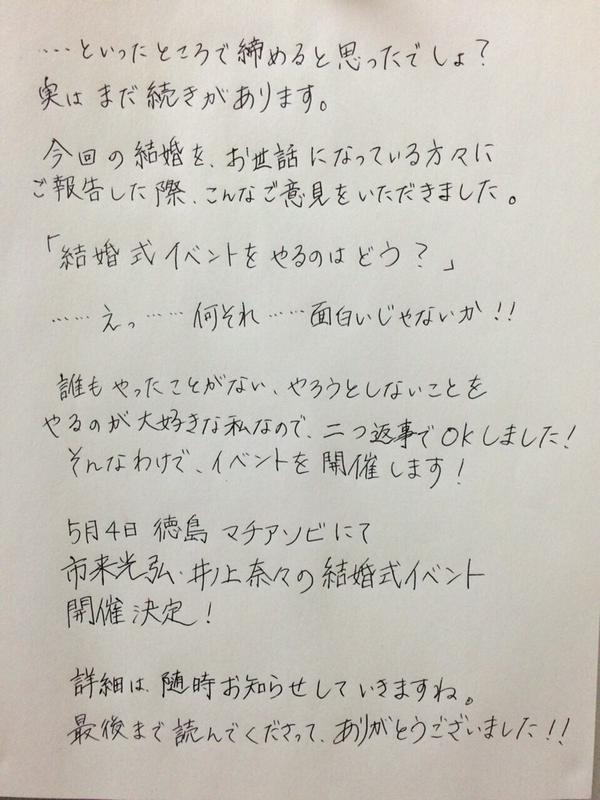 ……といったところで締めると思ったでしょ？
実はまだ続きがあります。
今回の結婚を、お世話になっている方々に
ご報告した際、こんなご意見をいただきました。
「結婚式イベントをやるのはどう？」
……えっ……何それ……面白いじゃないか!!
誰もやったことがない、やろうとしないことを
やるのが大好きな私なので、二つ返事でOKしました！
そんなわけで、イベントを開催します！
5月4日 徳島 マチアソビにて
市来光弘・井ノ上奈々の結婚式イベント
開催決定！
詳細は、随時お知らせしていきますね。
最後まで読んでくださって、ありがとうございました!!